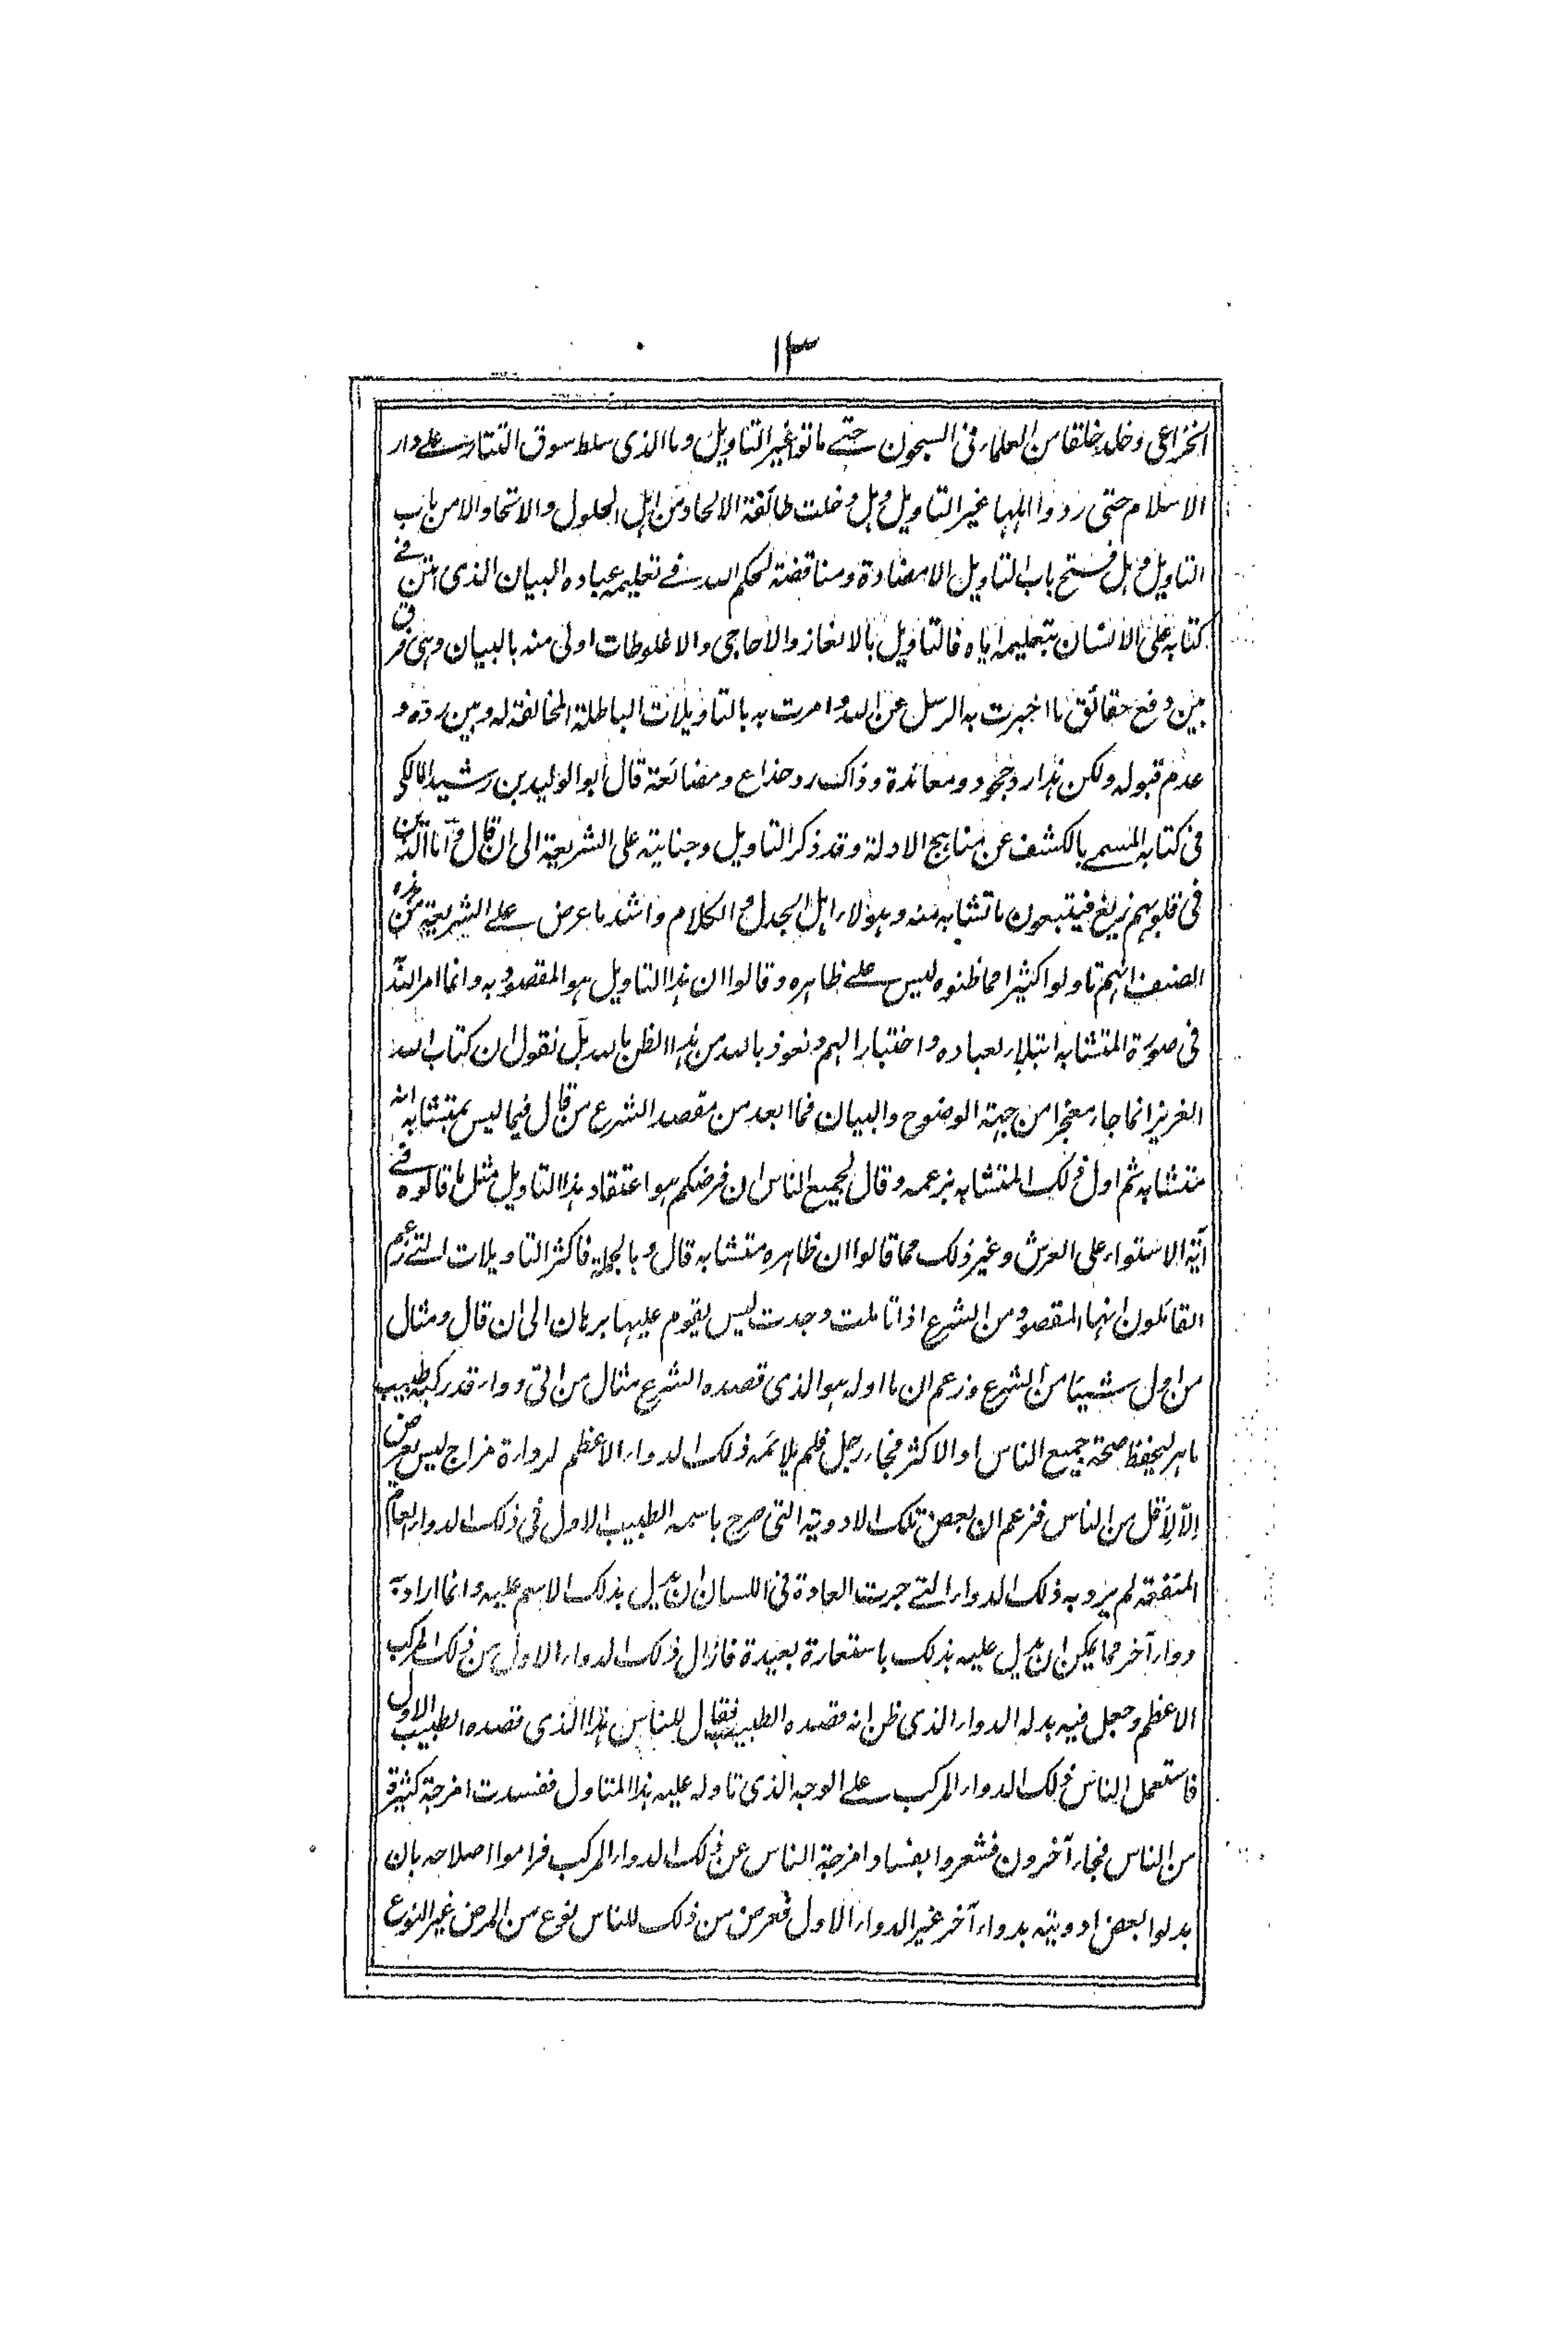 ١٣
الخزاعى وخلد خلقا من العلماء فى السجون حتے ماتوا غير التاويل وما الذى سلط سوق التتار علے دار
الاسلام حتى ردوا اهلها غير التاويل وهل دخلت طائفة الالحاد من اهل الحلول والاتحاد الا من باب
التاويل وهل فتح باب التاويل الا مضادة ومناقضة لحكم الله فے تعليمه عباده البيان الذى امتن فے
كتابه على الانسان بتعليمه اياه فالتاويل بالالغاز والاحاجى والاغلوطات اولى منه بالبيان وهى فرق
بين دفع حقائق ما اخبرت به الرسل عن الله وامرت به بالتاويلات الباطلة المخالفة له وبين رده و
عدم قبوله ولكن هذا رد جحود ومعاندة وذاك رد خداع ومصانعة قال ابو الوليد بن رشيد المالكى
فى كتابه المسمے بالكشف عن مناهج الادلة وقد ذكر التاويل وجنايته على الشريعة الى ان قال واما الذين
فى قلوبهم زيغ فيتبعون ما تشابه منه وهؤلاء اهل الجدل والكلام واشد ما عرض علے الشريعة من هذه
الصنف انهم تاولوا كثيرا مما ظنوه ليس علے ظاهره وقالوا ان هذا التاويل هو المقصود به وانما امر الله
فى صورة المتشابه ابتلاء لعباده واختبارا لهم ونعوذ بالله من هذا الظن بالله بل نقول ان كتاب الله
العزيز انما جاء معجزا من جهة الوضوح والبيان فما ابعد من مقصد الشرع من قال فيما ليس بمتشابه انه
متشابه ثم اول ذلك المتشابه بزعمه وقال لجميع الناس ان فرضكم هو اعتقاد هذا التاويل مثل ما قالوه فے
آية الاستواء على العرش وغير ذلك مما قالوا ان ظاهره متشابه قال وبالجملة فاكثر التاويلات التے زعم
القائلون انها المقصود من الشرع اذا تاملت وجدت ليس يقوم عليها برهان الى ان قال ومثال
من اول شيئا من الشرع وزعم ان ما اوله هو الذى قصده الشرع مثال من اتى دواء قد ركبه طبيب
ماهر ليحفظ صحة جميع الناس او الاكثر فجاء رجل فلم يلائمه ذلك الدواء الاعظم لرداءة مزاج ليس يعرض
الا لاقل من الناس فزعم ان بعض تلك الادوية التى صرح باسمه الطبيب الاول فى ذلك الدواء العام
المنفعة لم يرد به ذلك الدواء التے جرت العادة فى اللسان ان يدل بذلك الاسم عليه وانما اراد به
دواء آخر مما يمكن ان يدل عليه بذلك باستعارة بعيدة فازال ذلك الدواء الاول من ذلك المركب
الاعظم وجعل فيه بدله الدواء الذى ظن انه قصده الطبيب فقال للناس هذا الذى قصده الطبيب الاول
فاستعمل الناس ذلك الدواء المركب علے الوجه الذى تاوله عليه هذا المتاول ففسدت امزجة كثيرة
من الناس فجاء آخرون فشعروا بفساد امزجة الناس عن ذلك الدواء المركب فراموا اصلاحه بان
بدلوا بعض ادويته بدواء آخر غير الدواء الاول فعرض من ذلك للناس نوع من المرض غير النوع